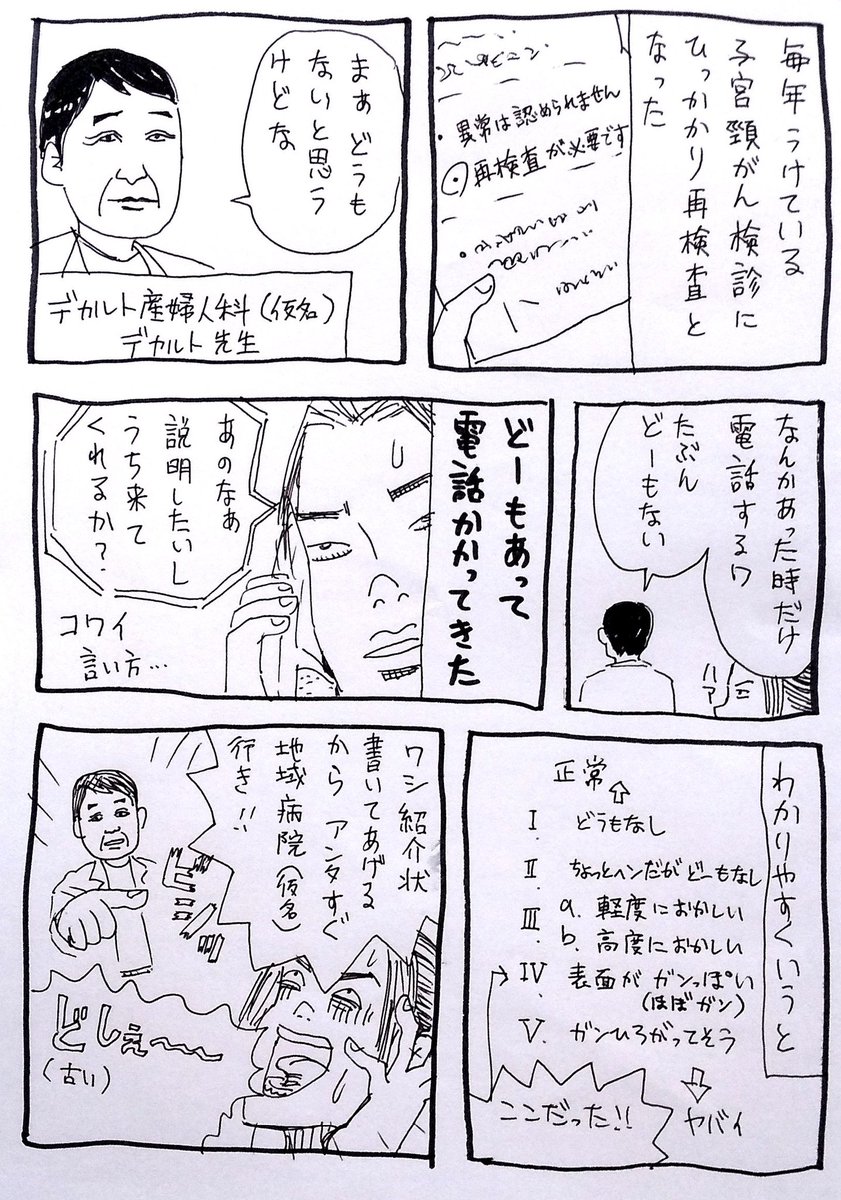 毎年うけている
子宮頸がん検診に
ひっかかり再検査と
なった
・異常は認められません
・再検査が必要です
まぁどうも
ないと思う
けどな
デカルト産婦人科(仮名)
デカルト先生
なんかあった時だけ
電話するワ
たぶん
どーもない
ハァ
どーもあって
電話かかってきた
あのなぁ
説明したいし
うち来て
くれるか?
コワイ
言い方…
わかりやすくいうと
正常
I. どうもなし
II. ちょっとヘンだがどーもなし
III. a. 軽度におかしい
b. 高度におかしい
IV. 表面がガンっぽい
(ほぼガン)
V. ガンひろがってそう
ヤバイ
ここだった!!
ワシ紹介状
書いてあげる
からアンタすぐ
地域病院(仮名)
行き!!
どしぇ〜〜
(古い)